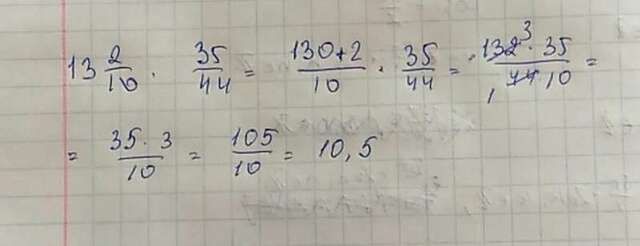 13 2/10 · 35/44 = (130+2)/10 · 35/44 = (132³ · 35)/(₁44 10) =
= (35 · 3)/10 = 105/10 = 10,5